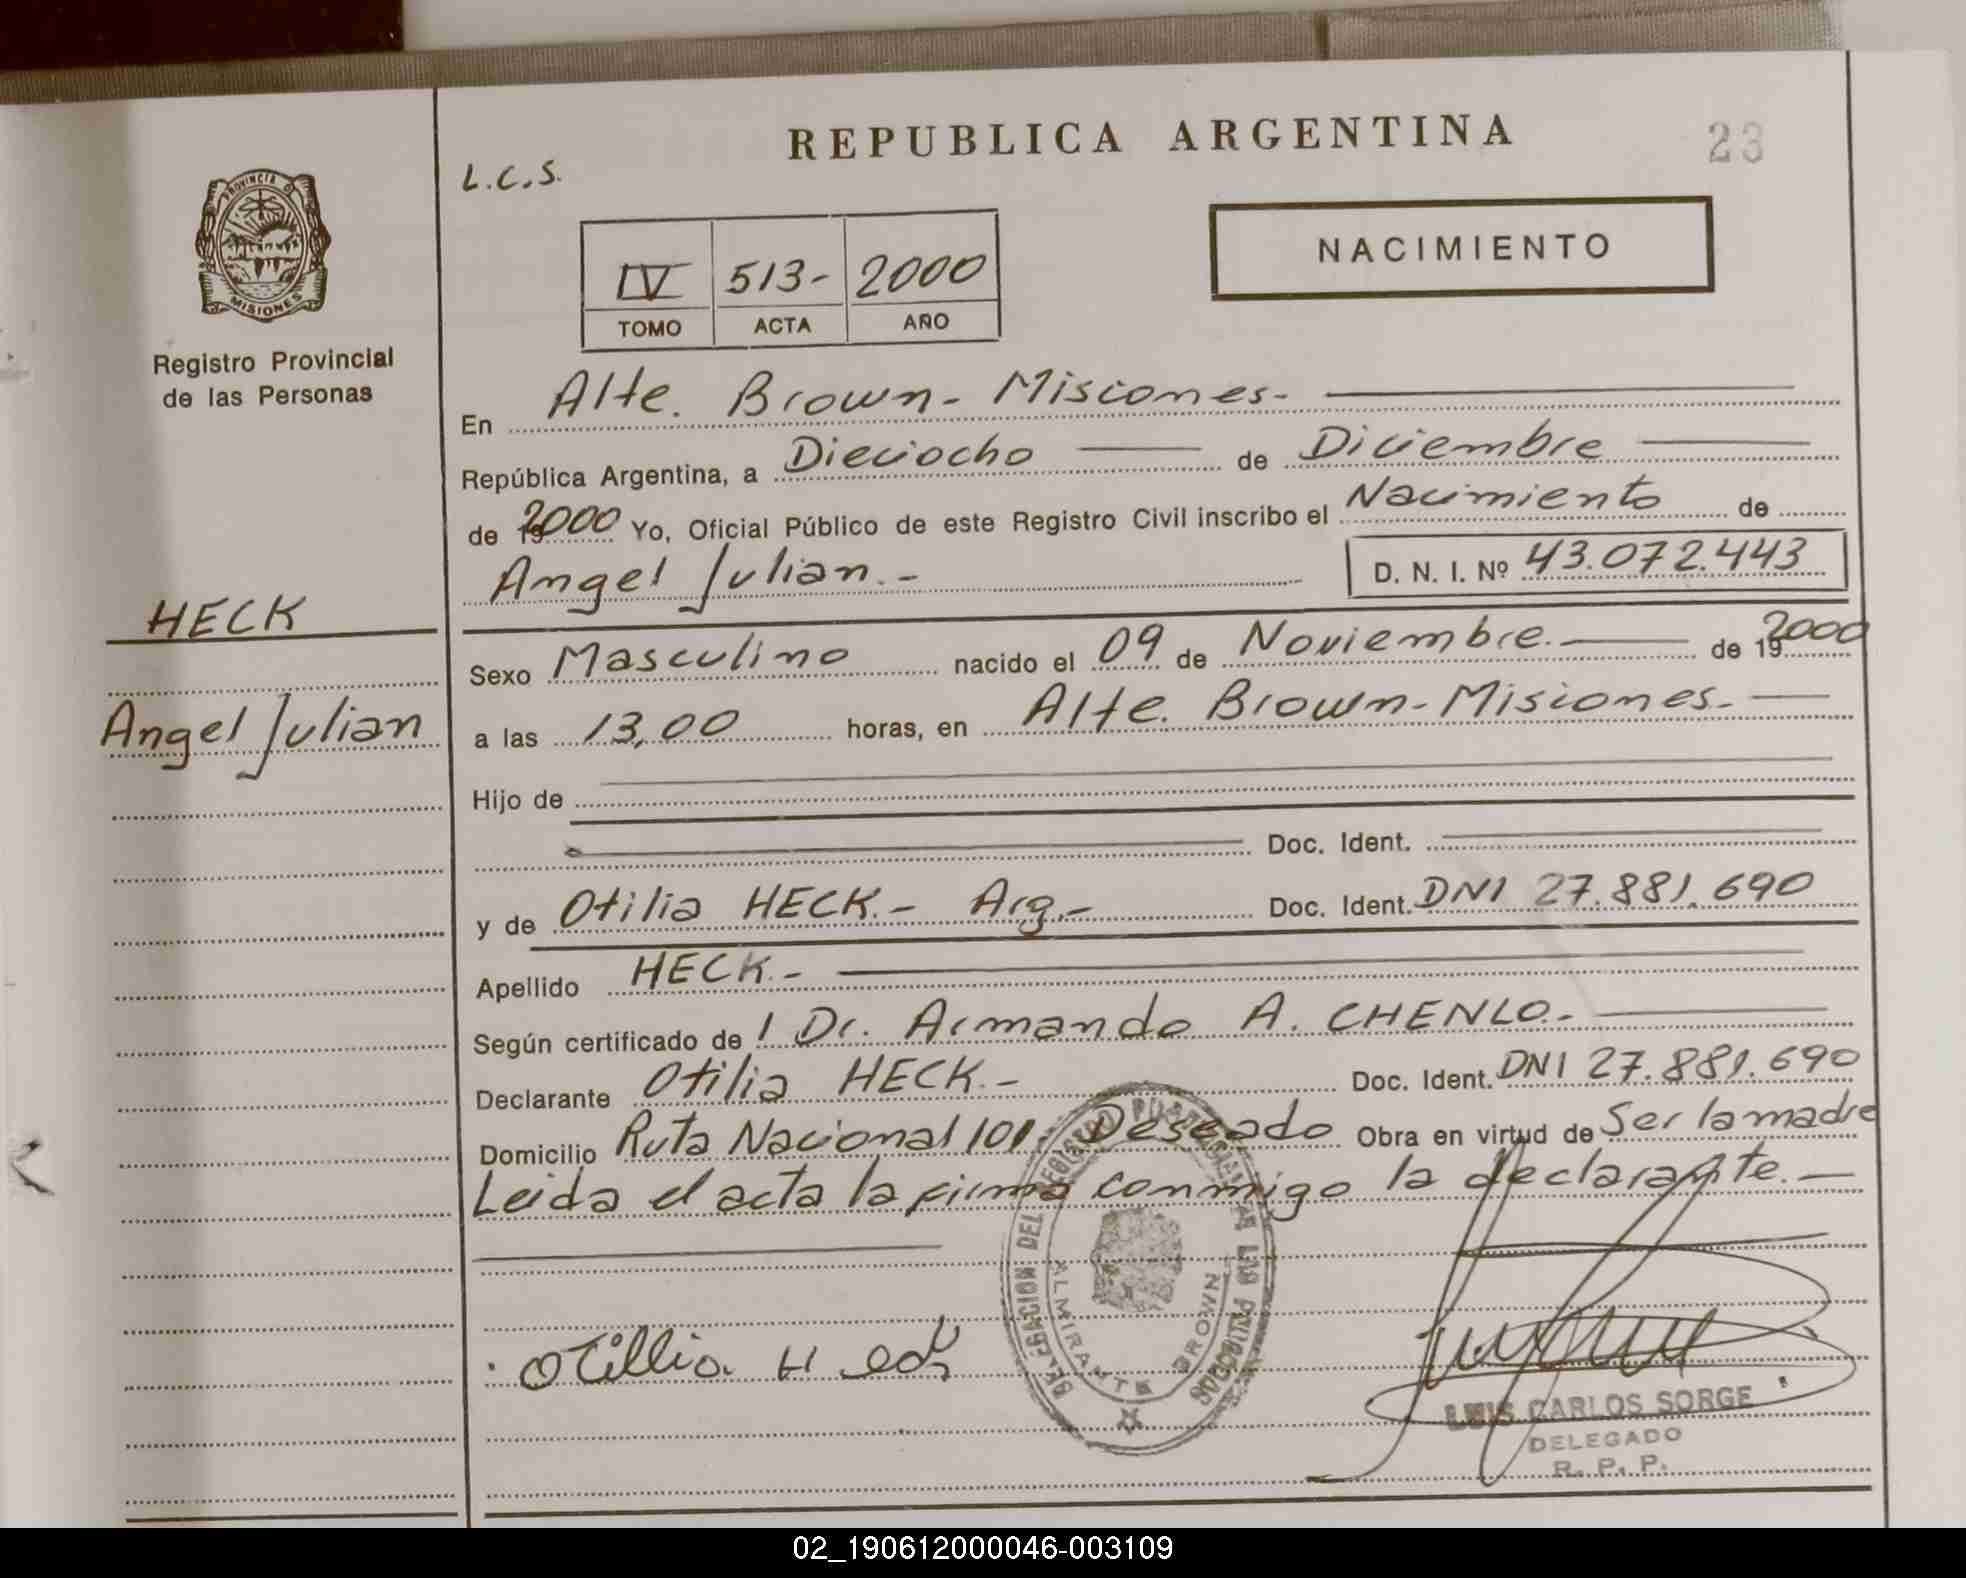 REPUBLICA ARGENTINA
23
L.C.S.
PROVINCIA D
MISIONES
Registro Provincial
de las Personas
NACIMIENTO
IV 513- 2000
TOMO ACTA AÑO
En Alte. Brown - Misiones.-
República Argentina, a Dieciocho de Diciembre
de 192000 Yo, Oficial Público de este Registro Civil inscribo el Nacimiento de
Angel Julian.- D. N. I. Nº 43.072.443
HECK
Angel Julian
Sexo Masculino nacido el 09 de Noviembre.- de 19 2000
a las 13,00 horas, en Alte. Brown - Misiones.-
Hijo de
Doc. Ident.
y de Otilia HECK.- Arg.- Doc. Ident. DNI 27.881.690
Apellido HECK.-
Según certificado de l Dr. Armando A. CHENLO.-
Declarante Otilia HECK.- Doc. Ident. DNI 27.881.690
Domicilio Ruta Nacional 101 Deseado Obra en virtud de Ser la madre
Leida el acta la firma conmigo la declarante.-
DELEGACION DEL REGISTRO PROVINCIAL DE LAS PERSONAS
ALMIRANTE BROWN
Otillia Heck
LUIS CARLOS SORGE
DELEGADO
R. P. P.
02_190612000046-003109